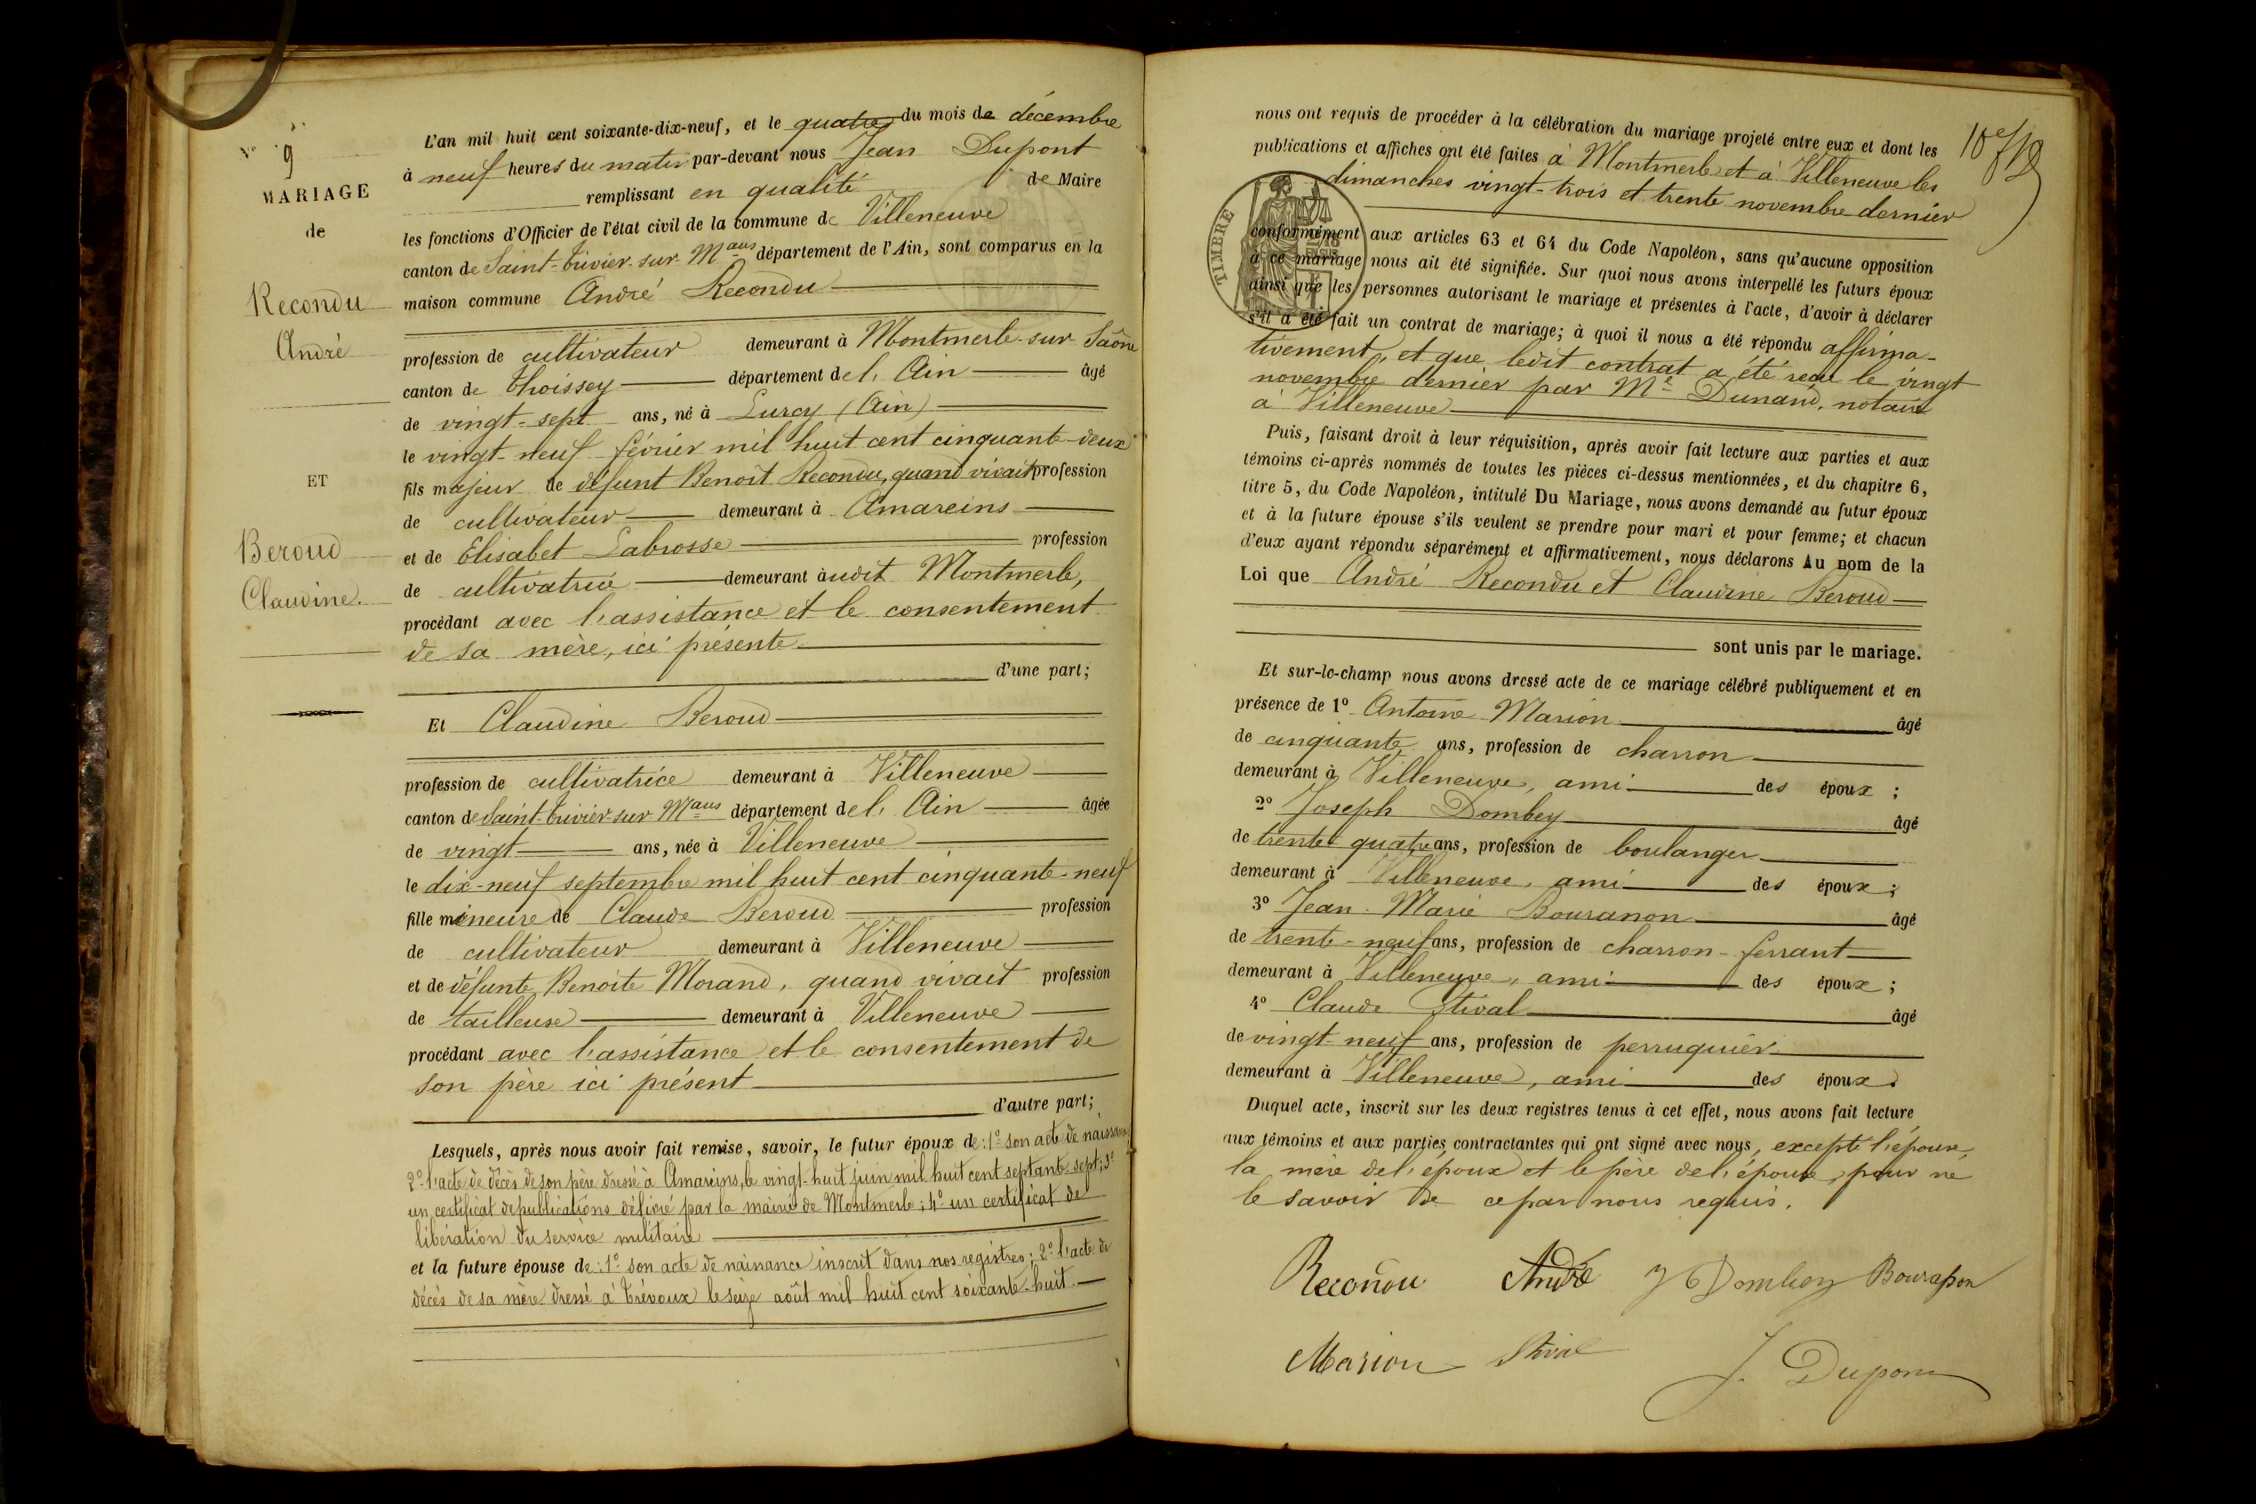 N° 9
MARIAGE
de
Recondu
André
ET
Beroud
Claudine.
L'an mil huit cent soixante-dix-neuf, et le quatre du mois de décembre
à neuf heures du matin par-devant nous Jean Dupont
remplissant en qualité de Maire
les fonctions d'Officier de l'état civil de la commune de Villeneuve
canton de Saint-Trivier-sur-Mans département de l'Ain, sont comparus en la
maison commune André Recondu
profession de cultivateur demeurant à Montmerle-sur-Saône
canton de Thoissey département de l'Ain âgé
de vingt-sept ans, né à Lurcy (Ain)
le vingt-neuf février mil huit cent cinquante-deux
fils majeur de défunt Benoît Recondu, quand vivait profession
de cultivateur demeurant à Amareins
et de Elisabet Labrosse profession
de cultivatrice demeurant àudit Montmerle,
procédant avec l'assistance et le consentement
de sa mère, ici présente
d'une part;
Et Claudine Beroud
profession de cultivatrice demeurant à Villeneuve
canton de Saint-Trivier-sur-Mans département de l'Ain âgée
de vingt ans, née à Villeneuve
le dix-neuf septembre mil huit cent cinquante-neuf
fille mineure de Claude Beroud profession
de cultivateur demeurant à Villeneuve
et de défunte Benoite Morand, quand vivait profession
de tailleuse demeurant à Villeneuve
procédant avec l'assistance et le consentement de
son père ici présent
d'autre part;
Lesquels, après nous avoir fait remise, savoir, le futur époux de: 1° son acte de naissance
2° l'acte de décès de son père dressé à Amareins, le vingt-huit juin mil huit cent septante-sept; 3°
un certificat de publications délivré par la mairie de Montmerle; 4° un certificat de
libération du service militaire
et la future épouse de: 1° son acte de naissance inscrit dans nos registres; 2° l'acte de
décès de sa mère dressé à Trévoux le seize août mil huit cent soixante-huit.
nous ont requis de procéder à la célébration du mariage projeté entre eux et dont les
publications et affiches ont été faites à Montmerle et à Villeneuve les
dimanches vingt-trois et trente novembre dernier
TIMBRE
conformément aux articles 63 et 64 du Code Napoléon, sans qu'aucune opposition
à ce mariage nous ait été signifiée. Sur quoi nous avons interpellé les futurs époux
ainsi que les personnes autorisant le mariage et présentes à l'acte, d'avoir à déclarer
s'il a été fait un contrat de mariage; à quoi il nous a été répondu affirma-
tivement, et que ledit contrat a été reçu le vingt
novembre dernier par Me Dunand, notaire
à Villeneuve
Puis, faisant droit à leur réquisition, après avoir fait lecture aux parties et aux
témoins ci-après nommés de toutes les pièces ci-dessus mentionnées, et du chapitre 6,
titre 5, du Code Napoléon, intitulé Du Mariage, nous avons demandé au futur époux
et à la future épouse s'ils veulent se prendre pour mari et pour femme; et chacun
d'eux ayant répondu séparément et affirmativement, nous déclarons Au nom de la
Loi que André Recondu et Claudine Beroud
sont unis par le mariage.
Et sur-le-champ nous avons dressé acte de ce mariage célébré publiquement et en
présence de 1° Antoine Marion âgé
de cinquante ans, profession de charron
demeurant à Villeneuve, ami des époux;
2° Joseph Dombey âgé
de trente-quatre ans, profession de boulanger
demeurant à Villeneuve, ami des époux;
3° Jean-Marie Bouranon âgé
de trente-neuf ans, profession de charron-ferrant
demeurant à Villeneuve, ami des époux;
4° Claude Stival âgé
de vingt-neuf ans, profession de perruquier
demeurant à Villeneuve, ami des époux.
Duquel acte, inscrit sur les deux registres tenus à cet effet, nous avons fait lecture
aux témoins et aux parties contractantes qui ont signé avec nous, excepté l'épouse
la mère de l'époux et le père de l'épouse, pour ne
le savoir de ce par nous requis.
Recondu André J Dombey Bourañon
Marion Stival
J. Dupont